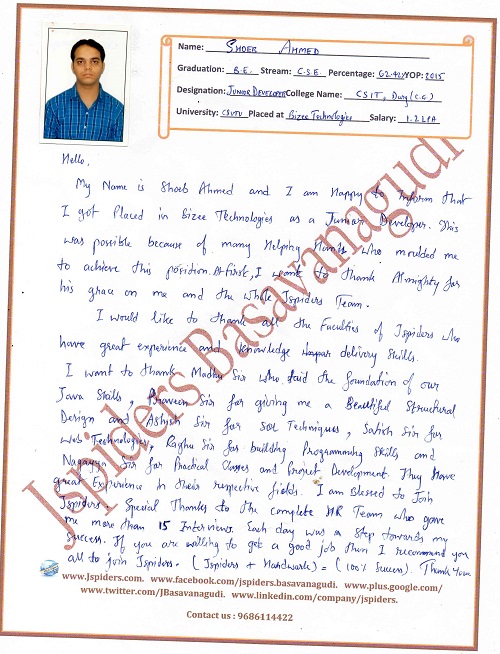 Name: SHOEB AHMED
Graduation: B.E. Stream: C.S.E. Percentage: 62.42% YOP: 2015
Designation: JUNIOR DEVELOPER College Name: CSIT, Durg (C.G)
University: CSVTU Placed at Bizee Technologies Salary: 1.2 LPA
Hello,
My Name is Shoeb Ahmed and I am Happy to Inform that
I got Placed in Bizee Technologies as a Junior Developer. This
was possible because of many Helping Hands who moulded me
to achieve this position. At first, I want to thank Almighty for
his grace on me and the whole Jspiders Team.
I would like to thank all the Faculties of Jspiders who
have great experience and knowledge delivery skills.
I want to thank Madhu Sir who laid the foundation of our
Java Skills, Praveen Sir for giving me a Beautiful Structural
Design and Ashish Sir for SQL Techniques, Satish Sir for
Web Technologies, Raghu Sir for building Programming Skills and
Sir for Practical Classes and Project Development. They Have
great Experience in their respective fields. I am Blessed to Join
Jspiders. Special Thanks to the complete HR Team who gave
me more than 15 Interviews. Each day was a step towards my
Success. If you are willing to get a good job then I recommend you
all to join Jspiders. (Jspiders + Hardwork) = (100% Success). Thank You
Jspiders Basavanagudi
www.jspiders.com. www.facebook.com/jspiders.basavanagudi. www.plus.google.com/
www.twitter.com/JBasavanagudi. www.linkedin.com/company/jspiders.
Contact us : 9686114422